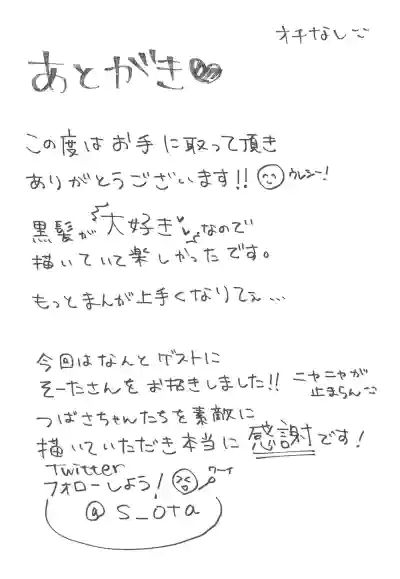 オチなし
あとがき♥
この度はお手に取って頂き
ありがとうございます!! ウレシー!
黒髪が大好き♥なので
描いていて楽しかったです。
もっとまんが上手くなりてぇ...
今回はなんとゲストに
そーたさんをお招きしました!! ニヤニヤが
止まらん
つばさちゃんたちを素敵に
描いていただき本当に感謝です!
Twitter
フォローしよう! ワーイ
@s_0ta